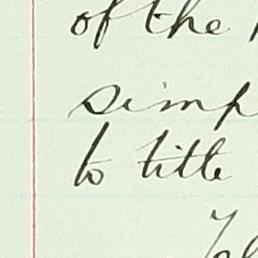 of the
simp
to title